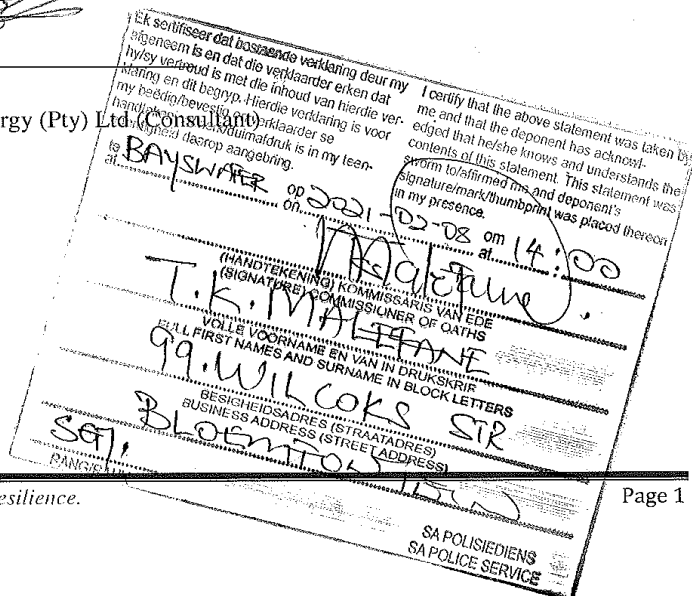 Ek sertifiseer dat bostaande verklaring deur my
afgeneem is en dat die verklaarder erken dat
hy/sy vertroud is met die inhoud van hierdie ver-
klaring en dit begryp. Hierdie verklaring is voor
my beëdig/bevestig verklaarder se
duimafdruk is in my teen-
daarop aangebring.
I certify that the above statement was taken by
me and that the deponent has acknowl-
edged that he/she knows and understands the
contents of this statement. This statement was
sworn to/affirmed me and deponent's
signature/mark/thumbprint was placed thereon
in my presence.
rgy (Pty) Ltd (Consultant)
te
at BAYSWATER op
on 2021-02-08 om
at 14:00
(HANDTEKENING) KOMMISSARIS VAN EDE
(SIGNATURE) COMMISSIONER OF OATHS
T.K. MALEFANE
VOLLE VOORNAME EN VAN IN DRUKSKRIF
FULL FIRST NAMES AND SURNAME IN BLOCK LETTERS
99. WILCOKS STR
BESIGHEIDSADRES (STRAATADRES)
BUSINESS ADDRESS (STREET ADDRESS)
SGT.
RANG
SA POLISIEDIENS
SA POLICE SERVICE
esilience.
Page 1